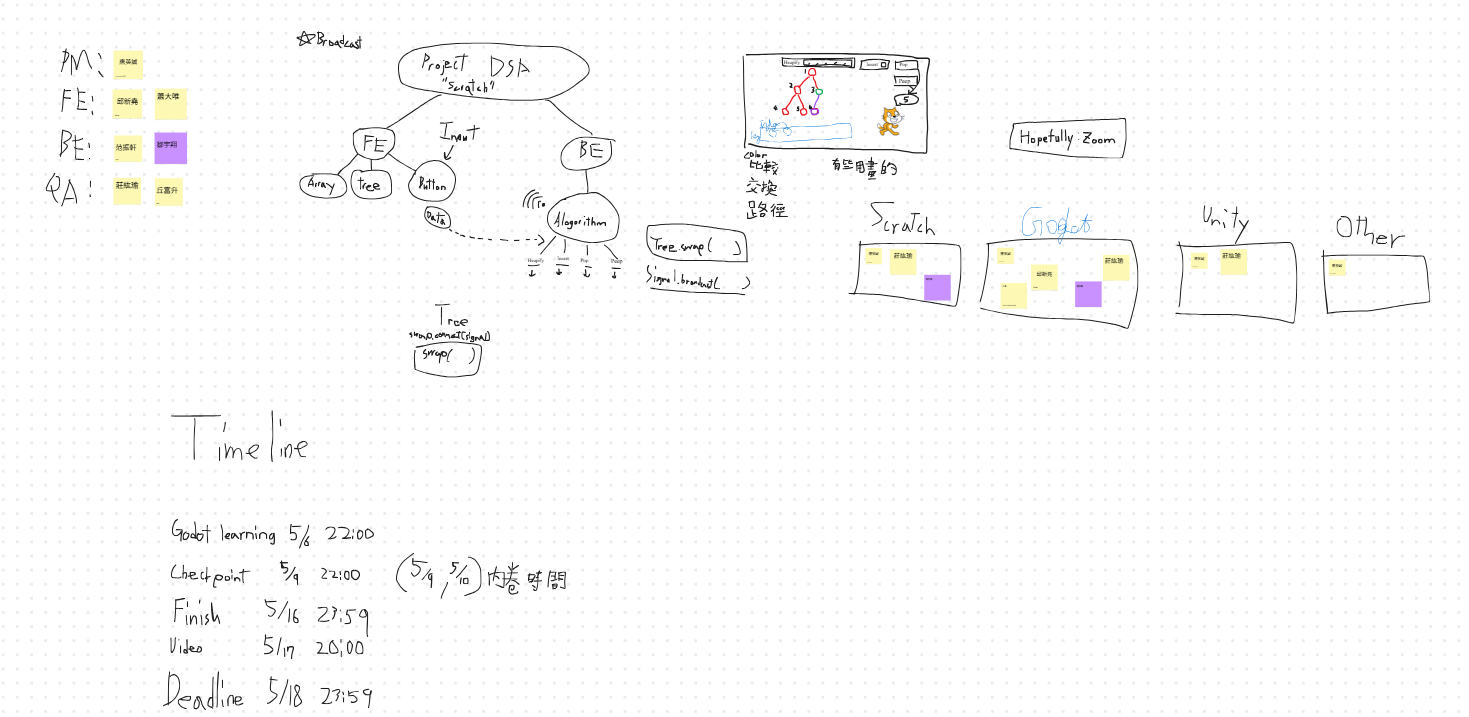 PM:
FE:
邱新堯
蕭大唯
BE:
范振軒
QA:
莊紘瑜
丘富升
☆Broadcast
Project DSA
"Scratch"
FE
Array
tree
Button
Input
Data
BE
Alogorithm
Heapify
Insert
Pop
Peep
Tree.swap( )
Signal.broadcast( )
Tree
swap.connect(signal)
swap( )
Heapify
Insert
Pop
Peep
1
2
3
4
5
5
color
比較
交換
路徑
有些用畫的
Hopefully: Zoom
Scratch
莊紘瑜
Godot
邱新堯
莊紘瑜
Unity
莊紘瑜
Other
Timeline
Godot learning 5/6 22:00
Checkpoint 5/9 22:00 (5/9, 5/10) 內卷時間
Finish 5/16 23:59
Video 5/17 20:00
Deadline 5/18 23:59